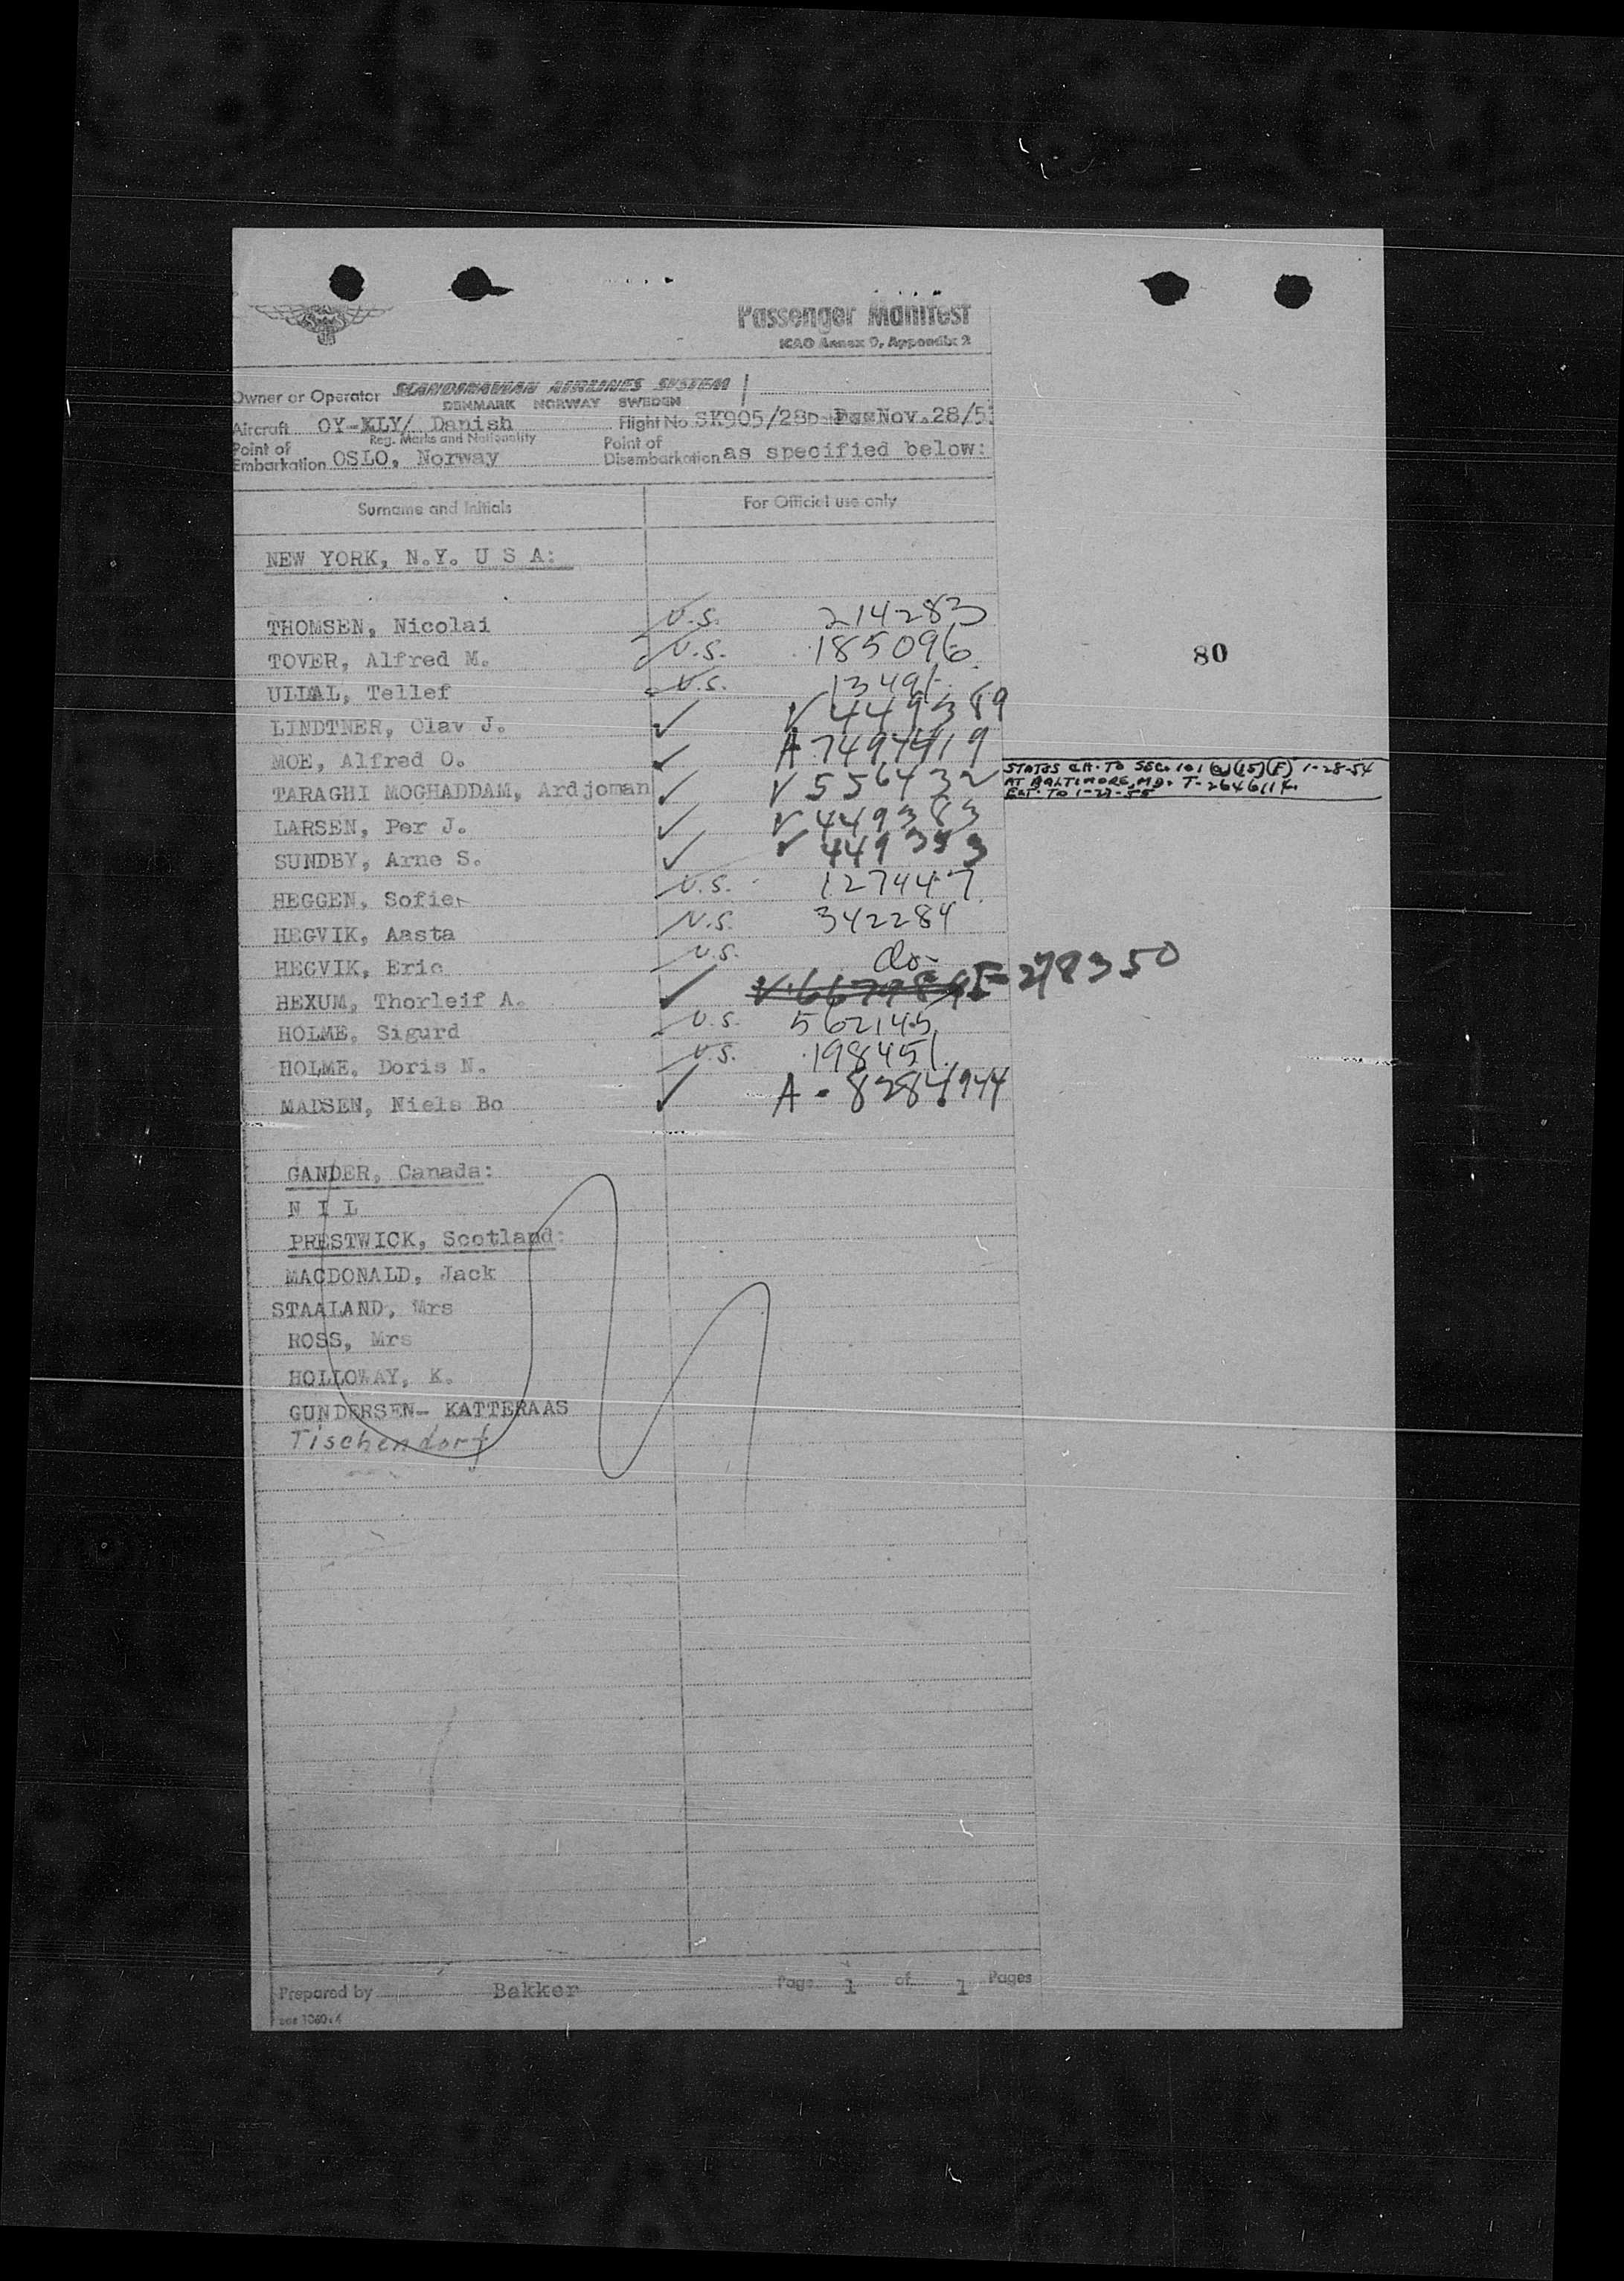 Passenger Manifest
ICAO Annex 9, Appendix 2
Owner or Operator SCANDINAVIAN AIRLINES SYSTEM
DENMARK NORWAY SWEDEN
Aircraft OY-KLY/ Danish Flight No. SK905/28 Nov. 28/53
Reg. Marks and Nationality
Point of Embarkation OSLO, Norway Point of Disembarkation as specified below:
Surname and Initials For Official use only
NEW YORK, N.Y. U S A:
THOMSEN, Nicolai U.S. 214283
TOVER, Alfred M. U.S. 185096
80
ULDAL, Tellef U.S. 13491
LINDTNER, Olav J. ✓ V 449389
MOE, Alfred O. ✓ A 7494419
STATUS CH. TO SEC. 101 (a)(15)(F) 1-28-54
AT BALTIMORE, MD. T-2646114
EXT. TO 1-27-55
TARAGHI MOGHADDAM, Ardjoman ✓ V 556432
LARSEN, Per J. ✓ V 449383
SUNDBY, Arne S. ✓ V 449393
HEGGEN, Sofie U.S. 127447
HEGVIK, Aasta U.S. 342284
HEGVIK, Eric U.S. do-
HEXUM, Thorleif A. ✓ I-278350
HOLME, Sigurd U.S. 562145
HOLME, Doris N. U.S. 198451
MADSEN, Niels Bo ✓ A-8284944
GANDER, Canada:
N I L
PRESTWICK, Scotland:
MACDONALD, Jack
STAALAND, Mrs
ROSS, Mrs
HOLLOWAY, K.
GUNDERSEN- KATTERAAS
Tischendorf
Prepared by Bakker Page 1 of 1 Pages